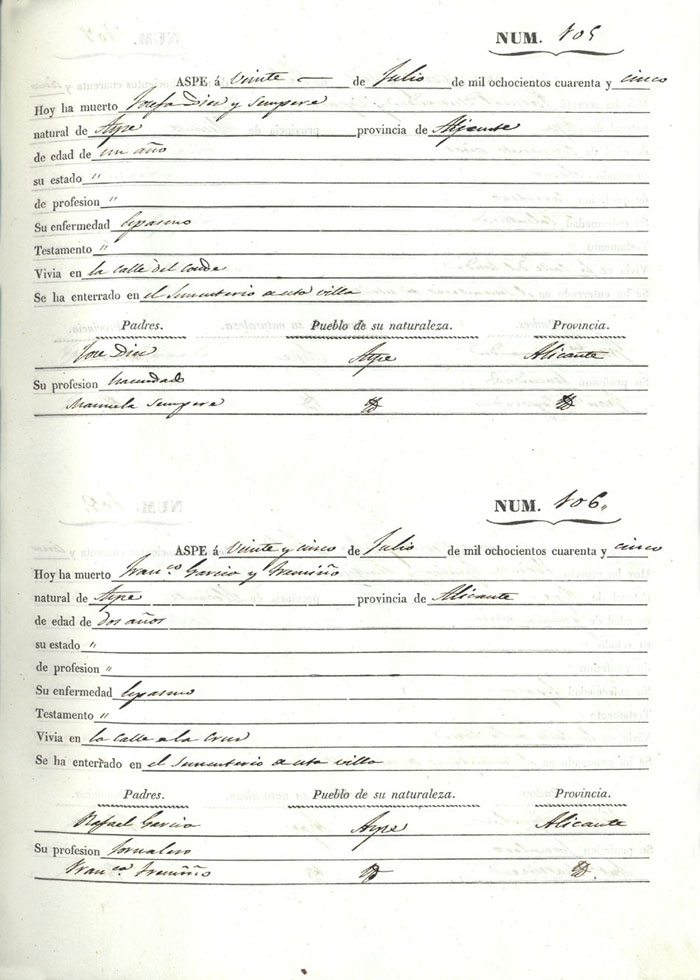 NUM. 105
ASPE á Veinte de Julio de mil ochocientos cuarenta y cinco
Hoy ha muerto Josefa Diez y Sempere
natural de Aspe provincia de Alicante
de edad de un año
su estado "
de profesion "
Su enfermedad
Testamento "
Vivia en la calle del Conde
Se ha enterrado en el Sementerio de esta villa
Padres. Pueblo de su naturaleza. Provincia.
Jose Diez Aspe Alicante
Su profesion hacendado
Manuela Sempere
NUM. 106.
ASPE á Veinte y cinco de Julio de mil ochocientos cuarenta y cinco
Hoy ha muerto Franco Garcia y
natural de Aspe provincia de Alicante
de edad de dos años
su estado "
de profesion "
Su enfermedad
Testamento "
Vivia en la calle de la Cruz
Se ha enterrado en el Sementerio de esta villa
Padres. Pueblo de su naturaleza. Provincia.
Rafael Garcia Aspe Alicante
Su profesion Jornalero
Franca